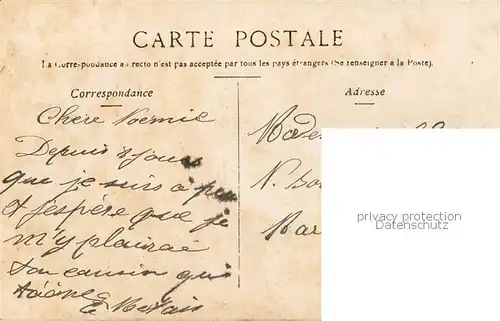 CARTE POSTALE
La Correspondance au recto n'est pas acceptée par tous les pays étrangers (Se renseigner à la Poste).
Correspondance
Adresse
Chère Noémie
Depuis 8 jours
que je suis à
et j'espère que je
m'y plairai
ton cousin qui
N.
privacy protection
Datenschutz